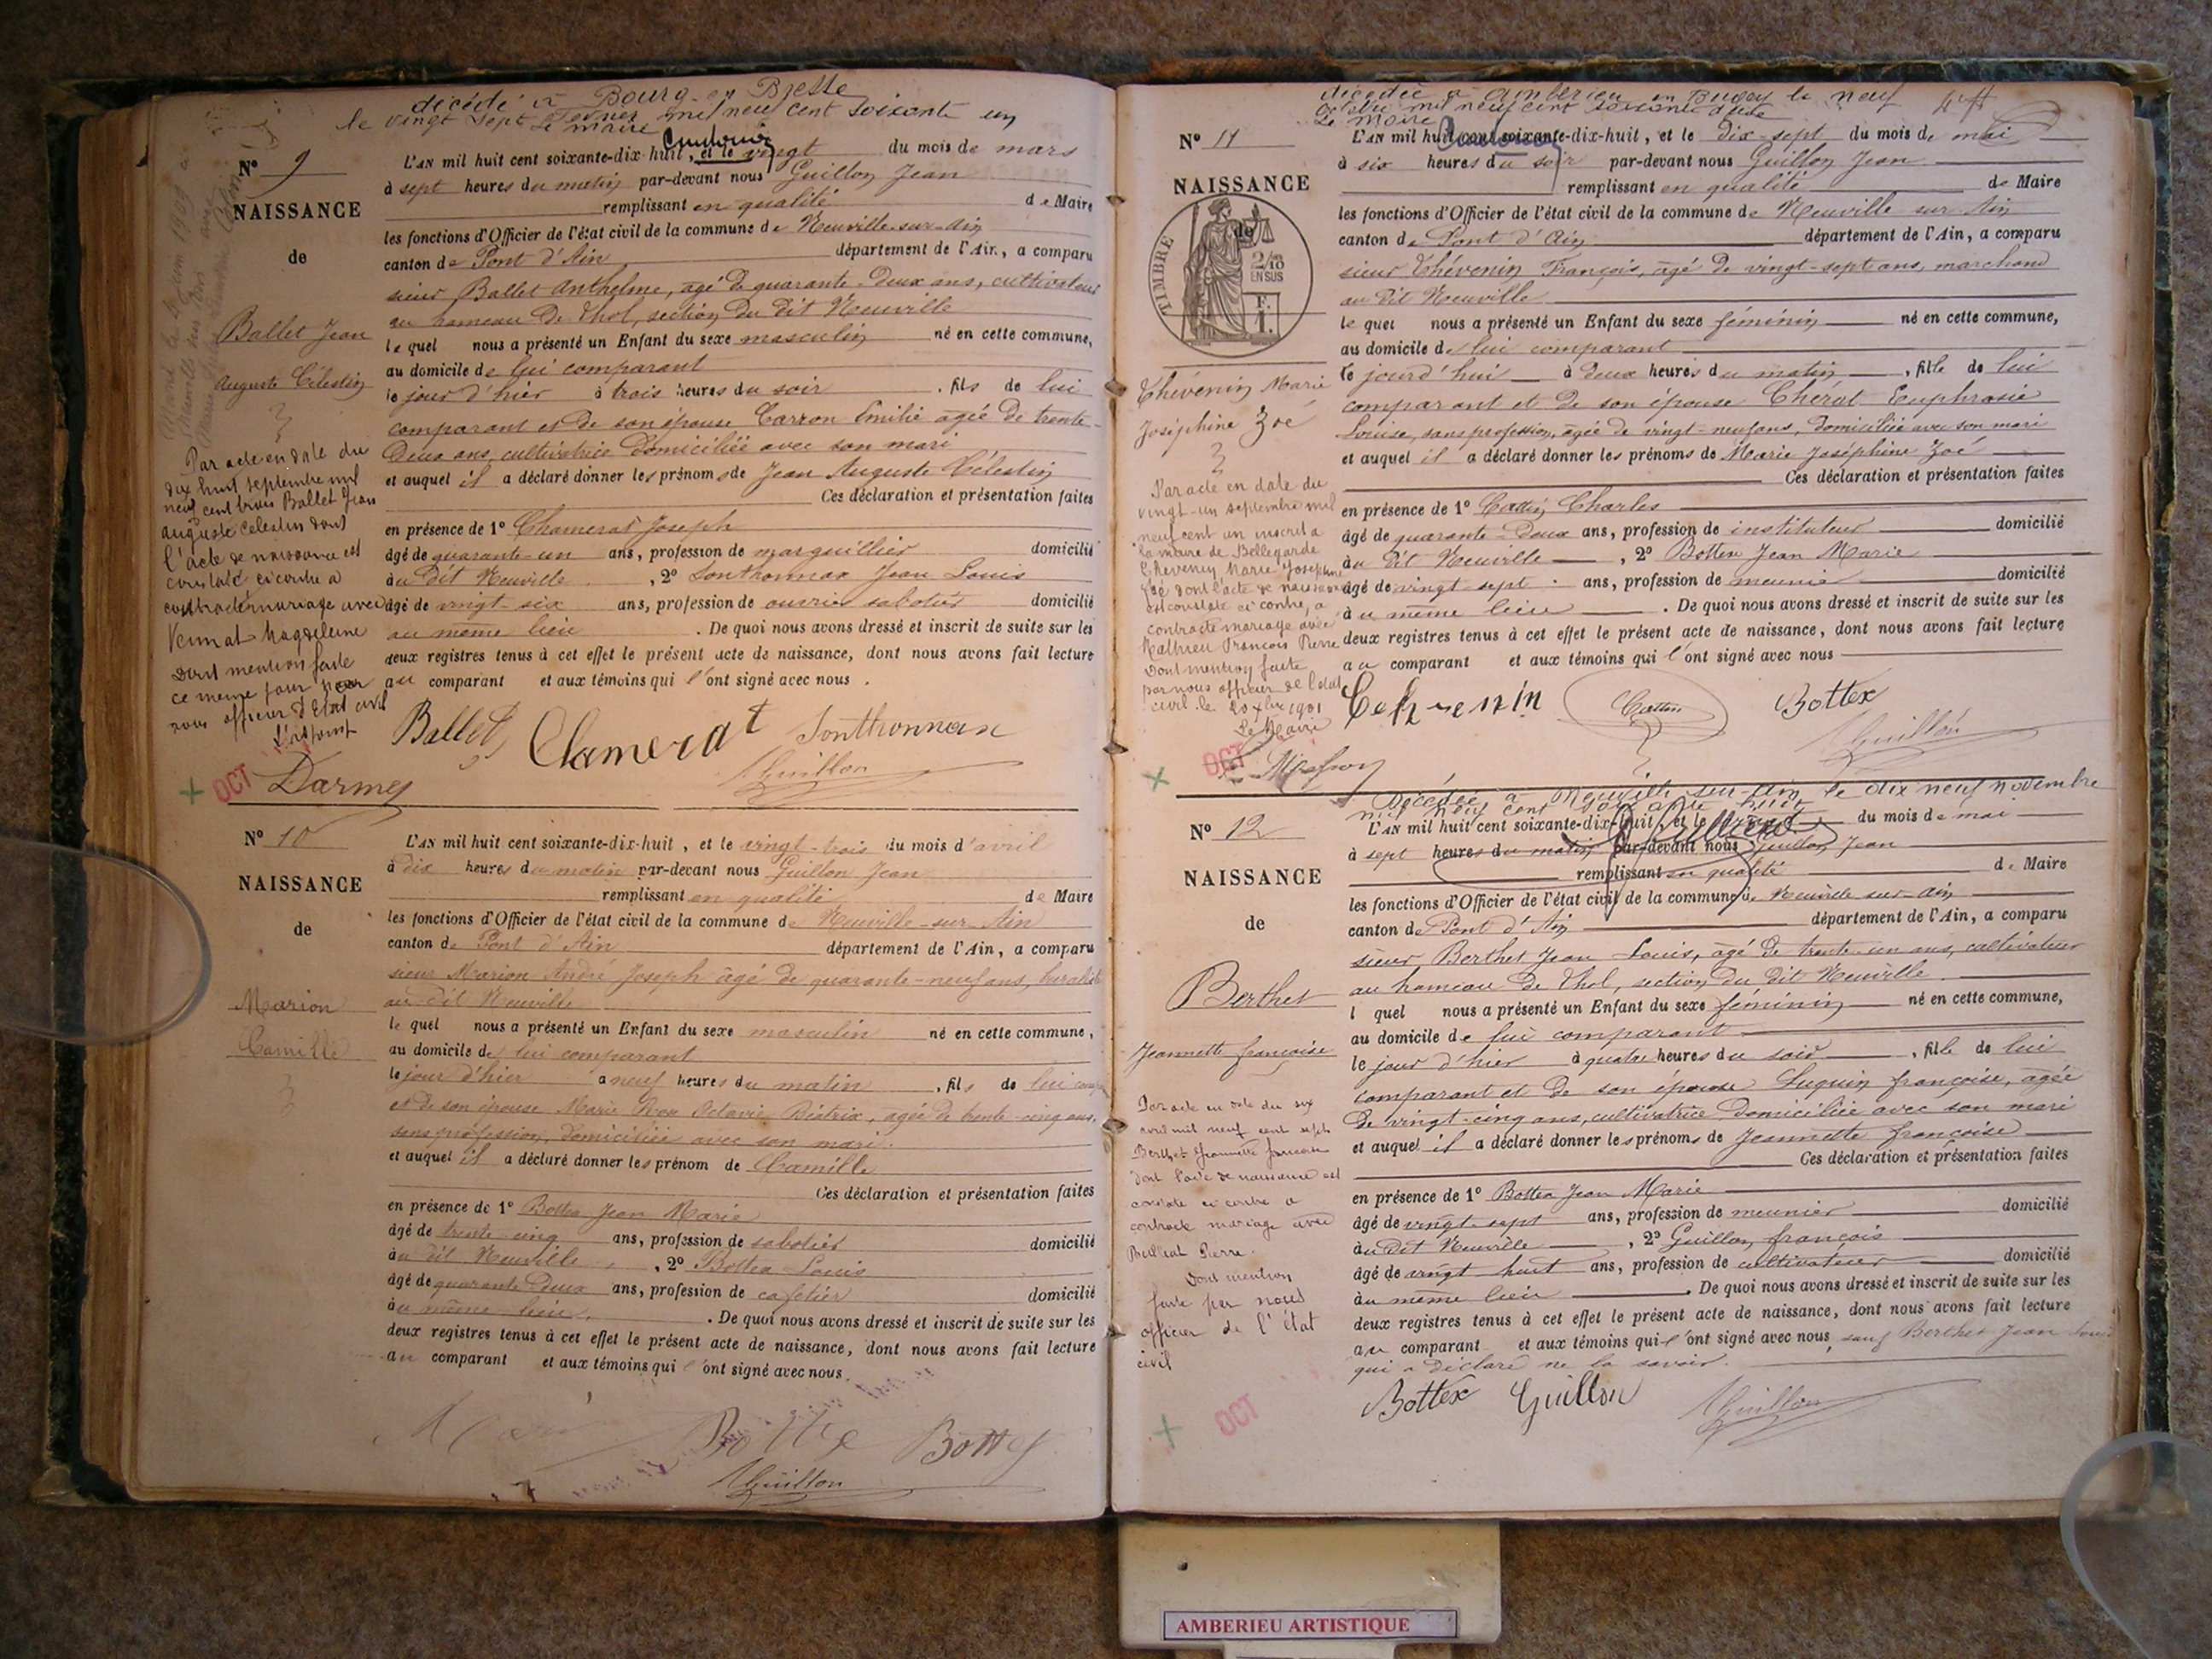 décédé à Bourg-en Bresse
le vingt sept février mil neuf cent soixante un
le maire
N° 9
NAISSANCE
de
Ballet Jean
Auguste Célestin
Par acte en date du
dix huit septembre mil
neuf cent trois Ballet Jean
Auguste Celestin dont
l'acte de naissance est
constaté ci contre a
contracté mariage avec
Vernat Magdeleine
Dont mention faite
ce même jour par
nous officier d'Etat civil
L'adjoint
OCT
Darmes
L'AN mil huit cent soixante-dix-huit, et le vingt du mois de mars
à sept heures du matin par-devant nous Guillon Jean
remplissant en qualité de Maire
les fonctions d'Officier de l'état civil de la commune de Neuville-sur-Ain
canton de Pont d'Ain département de l'Ain, a comparu
sieur Ballet Anthelme, âgé de quarante-deux ans, cultivateur
au hameau de Thol, section du dit Neuville
le quel nous a présenté un Enfant du sexe masculin né en cette commune,
au domicile de lui comparant
le jour d'hier à trois heures du soir, fils de lui
comparant et de son épouse Carron Emilie âgée de trente-
deux ans, cultivatrice domiciliée avec son mari
et auquel il a déclaré donner les prénoms de Jean Auguste Célestin
Ces déclaration et présentation faites
en présence de 1° Chamerat Joseph
âgé de quarante-un ans, profession de marguillier domicilié
au dit Neuville, 2° Sonthonnax Jean Louis
âgé de vingt-six ans, profession de ouvrier sabotier domicilié
au même lieu. De quoi nous avons dressé et inscrit de suite sur les
deux registres tenus à cet effet le présent acte de naissance, dont nous avons fait lecture
au comparant et aux témoins qui l'ont signé avec nous.
Ballet Clamerat Sonthonnax
Guillon
N° 10
NAISSANCE
de
Marion
Camille
L'AN mil huit cent soixante-dix-huit, et le vingt-trois du mois d'avril
à dix heures du matin par-devant nous Guillon Jean
remplissant en qualité de Maire
les fonctions d'Officier de l'état civil de la commune de Neuville-sur-Ain
canton de Pont d'Ain département de l'Ain, a comparu
sieur Marion André Joseph âgé de quarante-neuf ans, buraliste
au dit Neuville
le quel nous a présenté un Enfant du sexe masculin né en cette commune,
au domicile de lui comparant
le jour d'hier à neuf heures du matin, fils de lui
et de son épouse Marie Rose Octavie Béatrix, âgée de trente-cinq ans,
sans profession, domiciliée avec son mari.
et auquel il a déclaré donner les prénom de Camille
Ces déclaration et présentation faites
en présence de 1° Bottex Jean Marie
âgé de trente cinq ans, profession de sabotier domicilié
au dit Neuville, 2° Bottex Louis
âgé de quarante deux ans, profession de cafetier domicilié
au même lieu. De quoi nous avons dressé et inscrit de suite sur les
deux registres tenus à cet effet le présent acte de naissance, dont nous avons fait lecture
au comparant et aux témoins qui l'ont signé avec nous.
Bottex
Guillon
décédée à Ambérieu en Bugey le neuf
octobre mil neuf cent soixante
Le Maire
N° 11
NAISSANCE
de
TIMBRE
2/10 EN SUS
F. 1.
Thévenin Marie
Joséphine Zoé
Par acte en date du
vingt-un septembre mil
neuf cent un inscrit a
la mairie de Bellegarde
Marie Josephine
Zoé dont l'acte de naissance
est constaté ci contre, a
contracté mariage avec
Mathieu François Pierre
Dont mention faite
par nous officier de l'état
civil le
Le Maire
OCT
L'AN mil huit cent soixante-dix-huit, et le dix-sept du mois de mai
à six heures du soir par-devant nous Guillon Jean
remplissant en qualité de Maire
les fonctions d'Officier de l'état civil de la commune de Neuville sur Ain
canton de Pont d'Ain département de l'Ain, a comparu
sieur Thévenin François, âgé de vingt-sept ans, marchand
au dit Neuville
le quel nous a présenté un Enfant du sexe féminin né en cette commune,
au domicile de lui comparant
le jourd'hui à deux heures du matin, fille de lui
comparant et de son épouse Chérat Euphrasie
Louise, sans profession, âgée de vingt-neuf ans, domiciliée avec son mari
et auquel il a déclaré donner les prénoms de Marie Joséphine Zoé
Ces déclaration et présentation faites
en présence de 1° Cattin Charles
âgé de quarante-deux ans, profession de instituteur domicilié
au dit Neuville, 2° Bottex Jean Marie
âgé de vingt sept ans, profession de meunier domicilié
au même lieu. De quoi nous avons dressé et inscrit de suite sur les
deux registres tenus à cet effet le présent acte de naissance, dont nous avons fait lecture
au comparant et aux témoins qui l'ont signé avec nous
Cattin Bottex
Guillon
Décédée à Neuville sur-Ain le dix neuf novembre
mil neuf cent soixante huit
N° 12
NAISSANCE
de
Berthet
Jeannette françoise
Par acte en date du six
avril mil neuf cent sept
Berthet Jeannette françoise
dont l'acte de naissance est
constaté ci contre a
contracté mariage avec
Pierre.
Dont mention
faite par nous
officier de l'état
civil
OCT
L'AN mil huit cent soixante-dix-huit, et le du mois de mai
à sept heures du matin par-devant nous Guillon Jean
remplissant en qualité de Maire
les fonctions d'Officier de l'état civil de la commune de Neuville sur-Ain
canton de Pont d'Ain département de l'Ain, a comparu
sieur Berthet Jean Louis, âgé de trente-un ans, cultivateur
au hameau de Thol, section du dit Neuville
l quel nous a présenté un Enfant du sexe féminin né en cette commune,
au domicile de lui comparant
le jour d'hier à quatre heures du soir, fille de lui
comparant et de son épouse Luquin françoise, âgée
de vingt-cinq ans, cultivatrice domiciliée avec son mari
et auquel il a déclaré donner les prénoms de Jeannette françoise
Ces déclaration et présentation faites
en présence de 1° Bottex Jean Marie
âgé de vingt-sept ans, profession de meunier domicilié
au dit Neuville, 2° Guillon françois
âgé de vingt huit ans, profession de cultivateur domicilié
au même lieu. De quoi nous avons dressé et inscrit de suite sur les
deux registres tenus à cet effet le présent acte de naissance, dont nous avons fait lecture
au comparant et aux témoins qui l'ont signé avec nous, sauf Berthet Jean Louis
qui a déclaré ne la savoir.
Bottex Guillon Guillon
AMBERIEU ARTISTIQUE